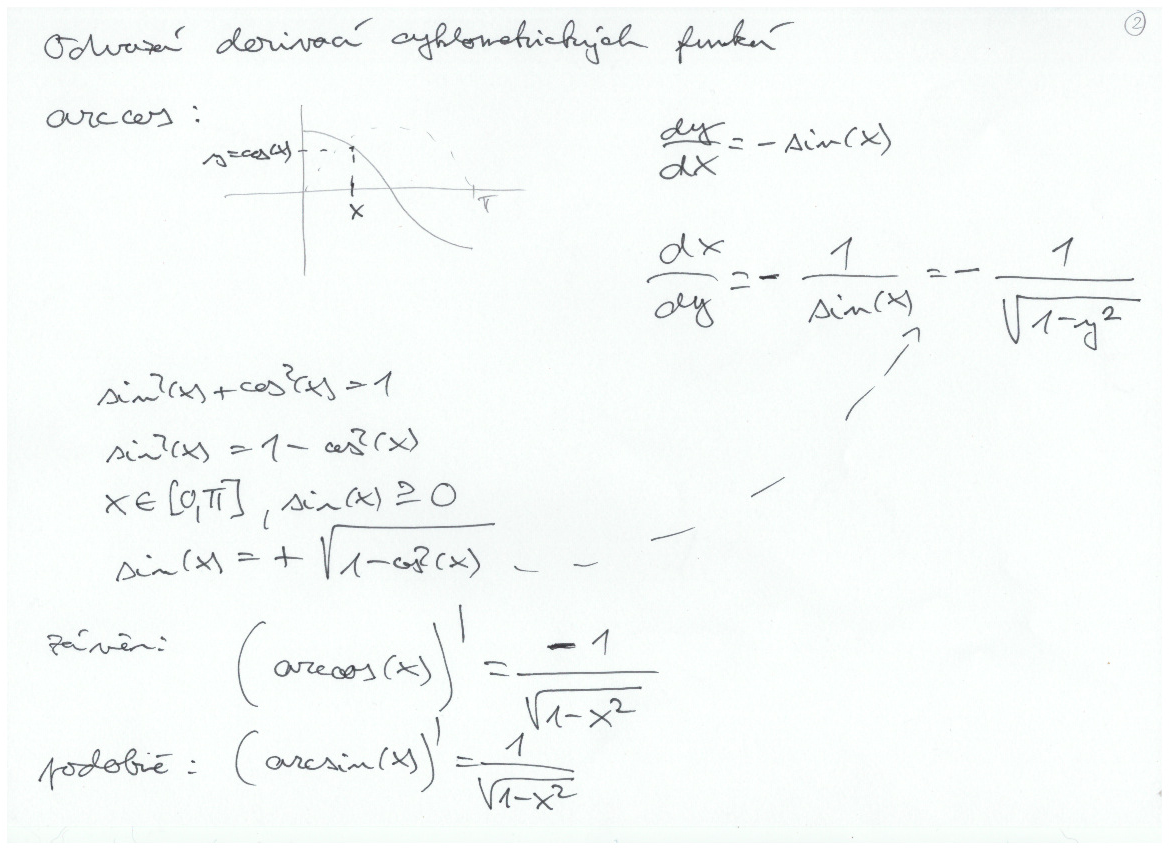 ②
Odvození derivací cyklometrických funkcí
arccos:
y=cos(x)
x
π
dy/dx = - sin(x)
dx/dy = - 1/sin(x) = - 1/√(1-y²)
sin²(x) + cos²(x) = 1
sin²(x) = 1 - cos²(x)
x ∈ [0,π], sin(x) ≥ 0
sin(x) = + √(1-cos²(x))
závěr: (arccos(x))' = -1/√(1-x²)
podobně: (arcsin(x))' = 1/√(1-x²)